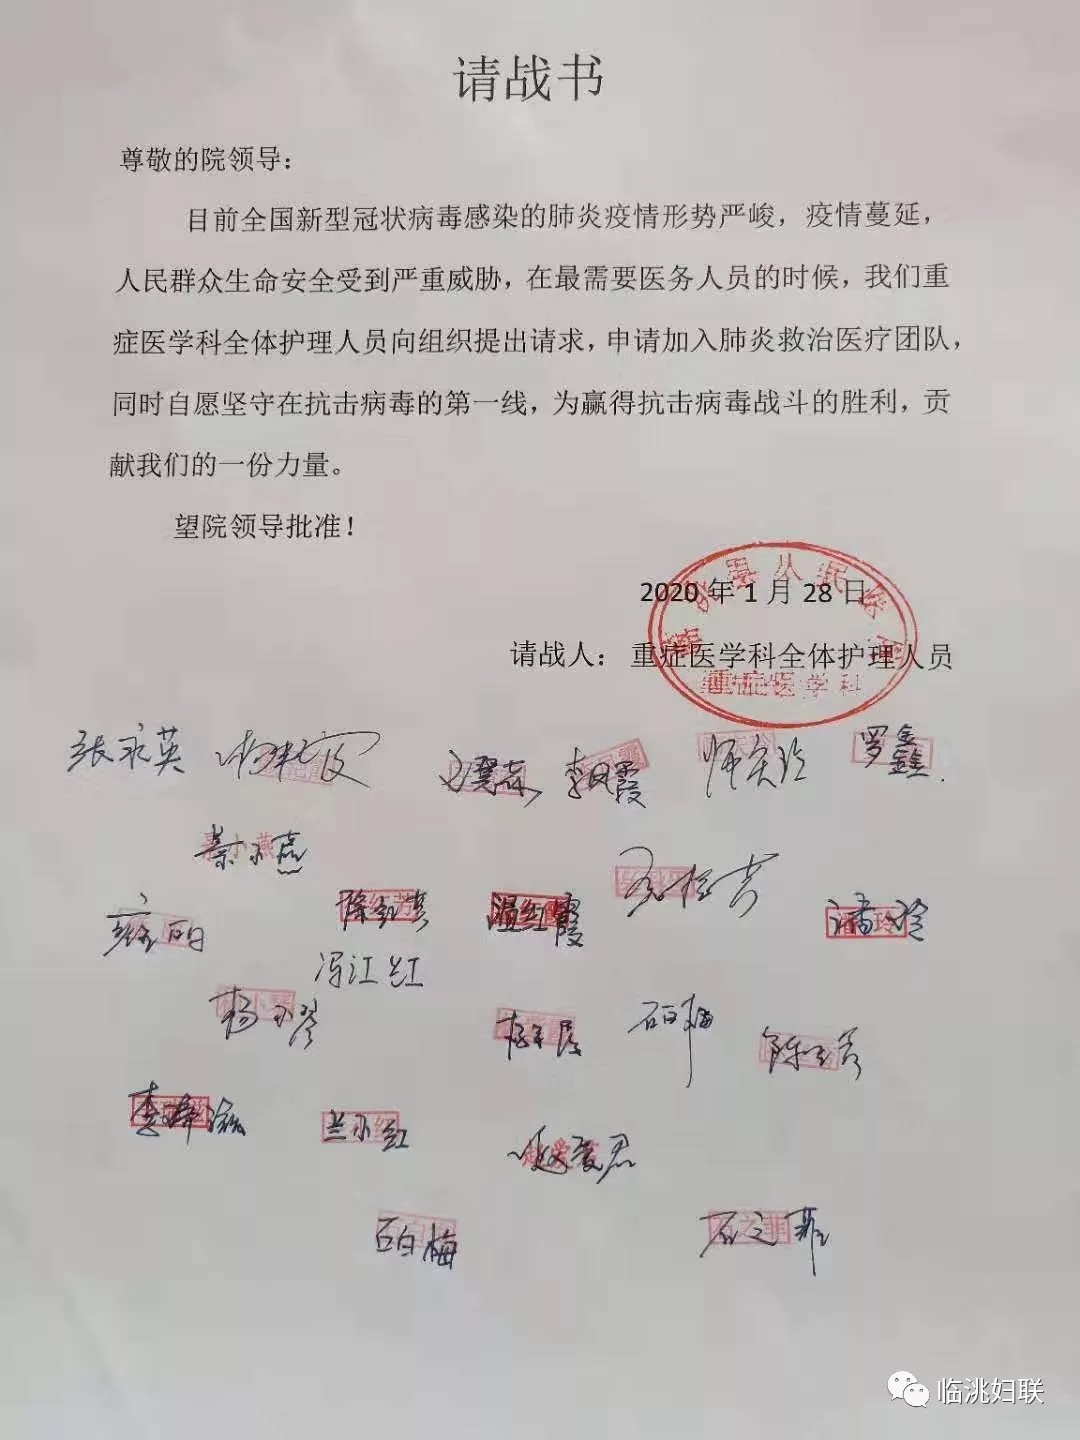 请战书
尊敬的院领导：
目前全国新型冠状病毒感染的肺炎疫情形势严峻，疫情蔓延，
人民群众生命安全受到严重威胁，在最需要医务人员的时候，我们重
症医学科全体护理人员向组织提出请求，申请加入肺炎救治医疗团队，
同时自愿坚守在抗击病毒的第一线，为赢得抗击病毒战斗的胜利，贡
献我们的一份力量。
望院领导批准！
2020 年 1 月 28 日
请战人： 重症医学科全体护理人员
临洮县人民医院
重症医学科
张永英
李凤霞
罗鑫
秦小燕
温红霞
潘玲
冯江红
杨小琴
石白梅
兰小红
赵爱君
石白梅
石之菲
临洮妇联